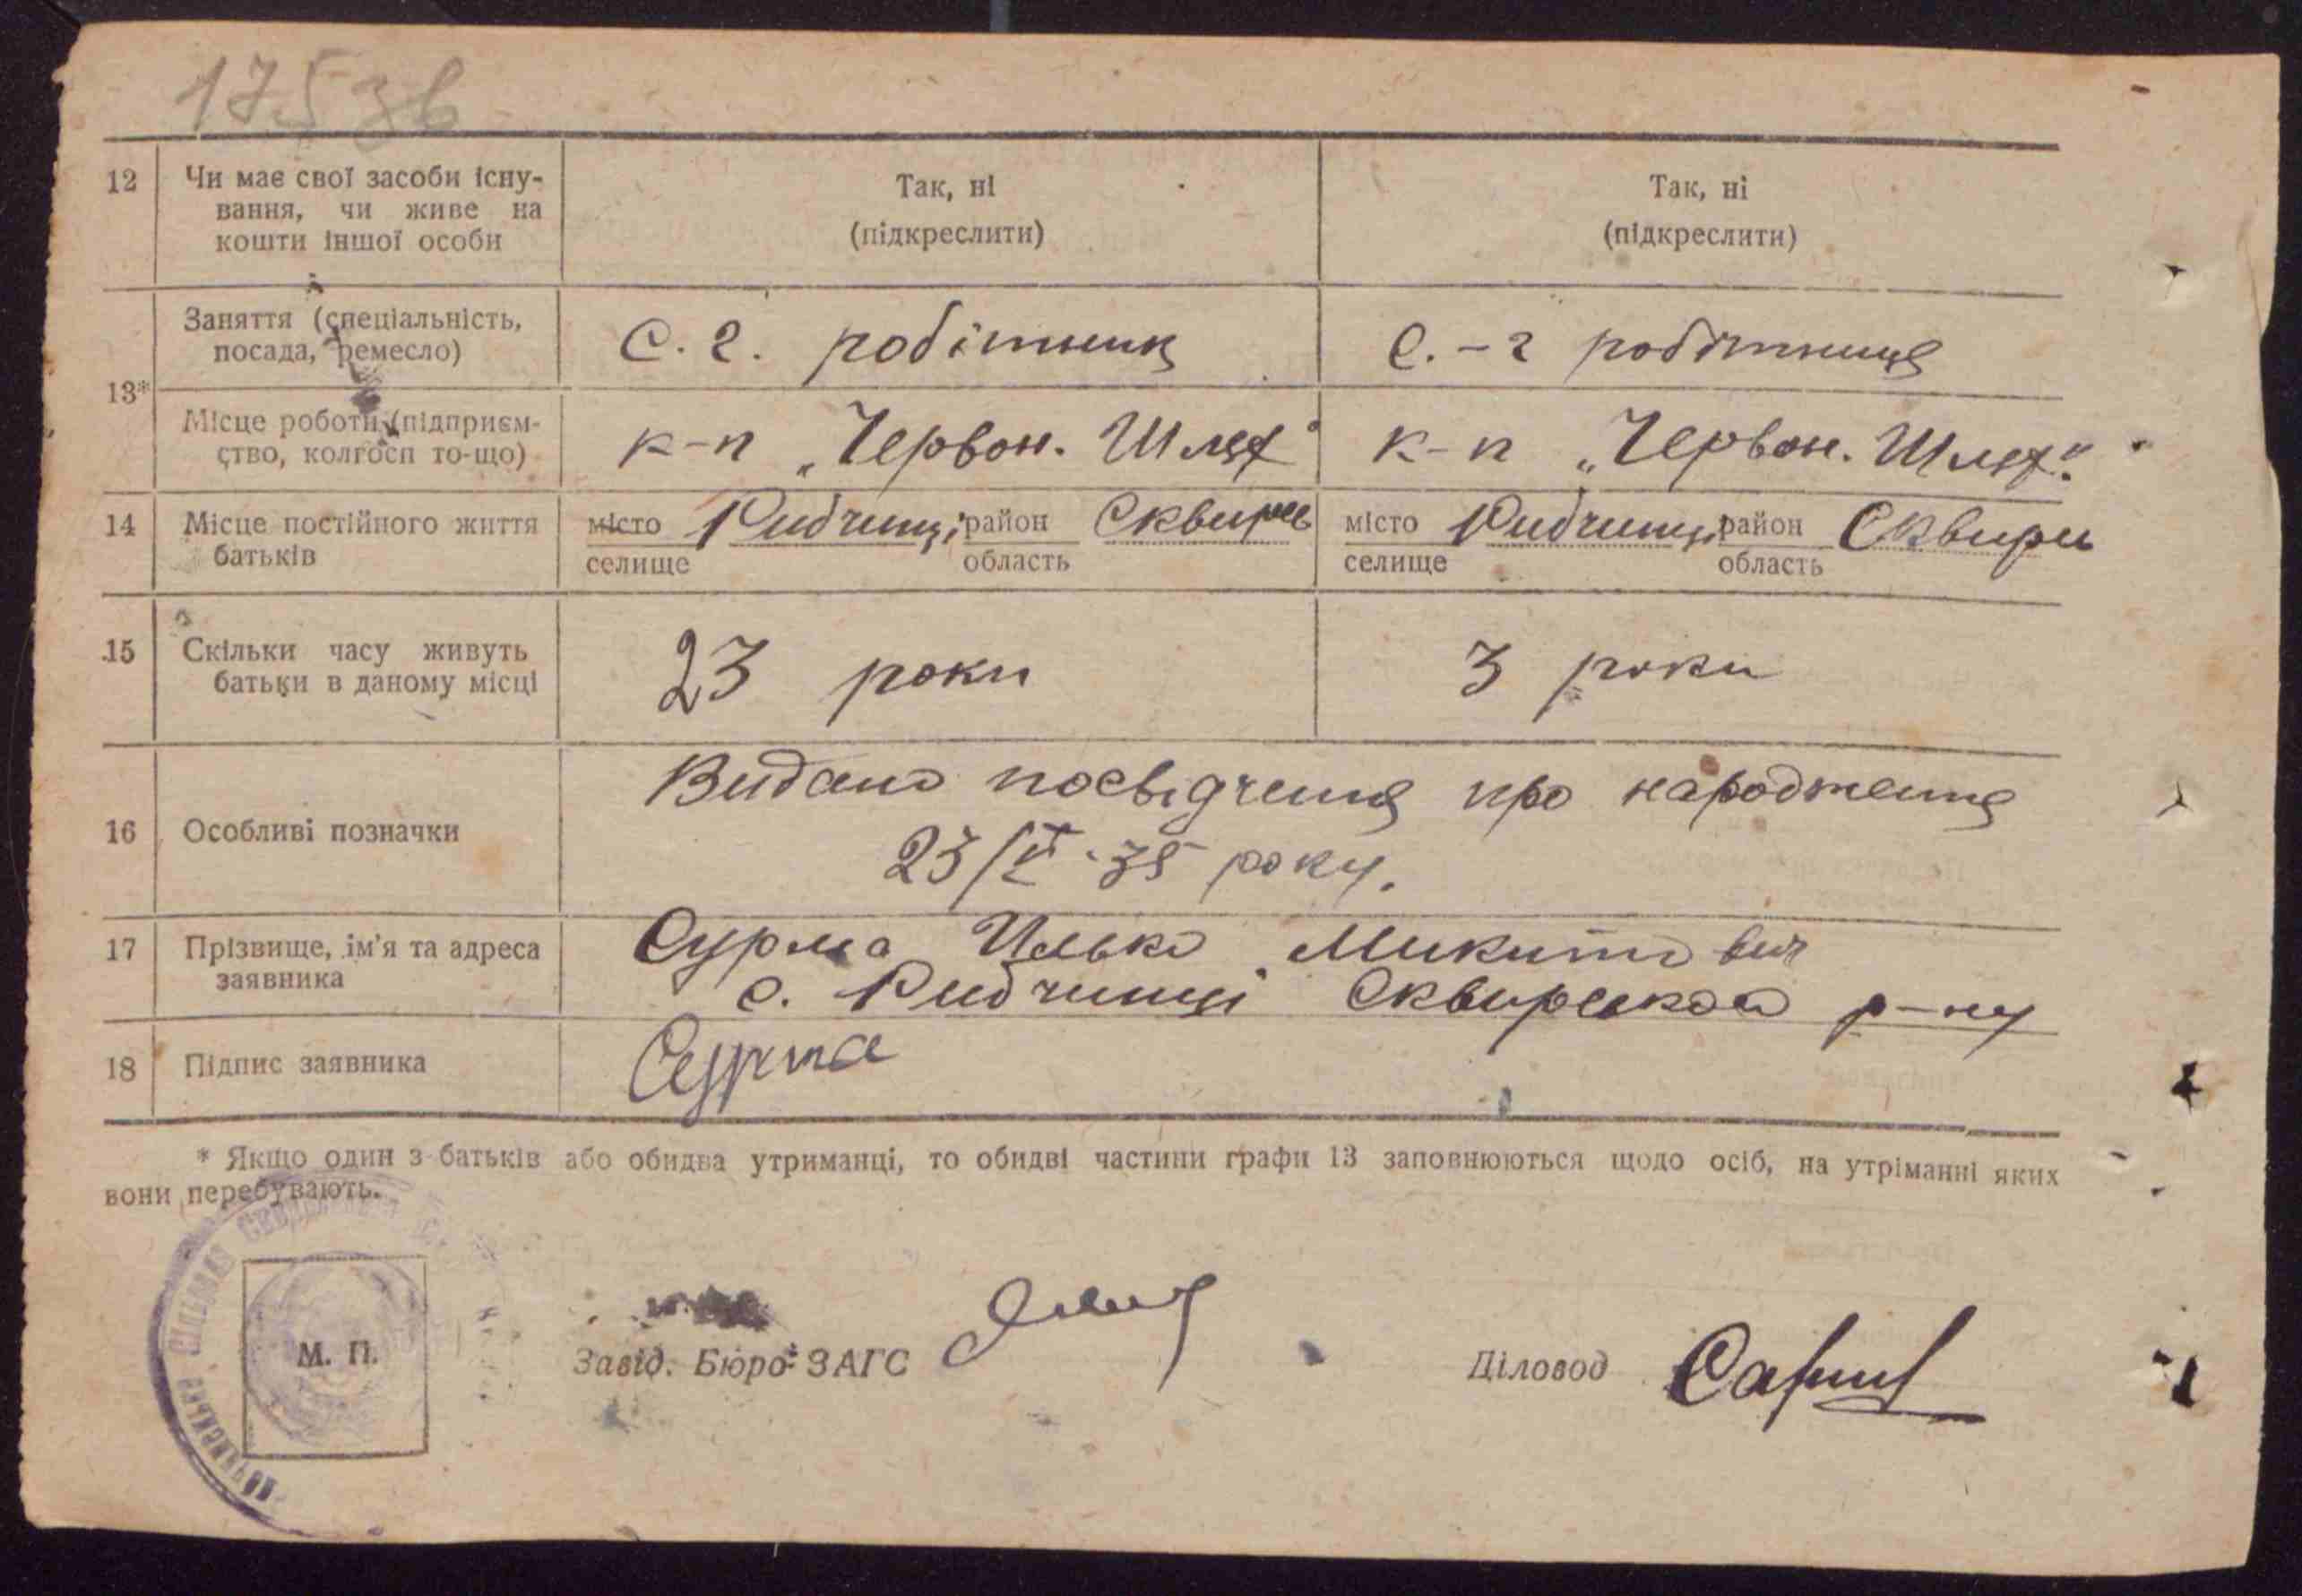 175 зв
12 Чи має свої засоби існу-
вання, чи живе на
кошти іншої особи
Так, ні
(підкреслити)
Так, ні
(підкреслити)
13*
Заняття (спеціальність,
посада, ремесло)
С. г. робітник
С.-г робітниця
Місце роботи (підприєм-
ство, колгосп то-що)
к-п „Червон. Шлях"
к-п „Червон. Шлях".
14 Місце постійного життя
батьків
місто Рибчинці район Сквирсь
селище область
місто Рибчинці район Сквирсь
селище область
15 Скільки часу живуть
батьки в даному місці
23 роки
3 роки
16 Особливі позначки
Видано посвідчення про народження
23/VI-35 року.
17 Прізвище, ім'я та адреса
заявника
Сурма Илько Микитович
с. Рибчинці Сквирської р-ну
18 Підпис заявника
Сурма
* Якщо один з батьків або обидва утриманці, то обидві частини графи 13 заповнюються щодо осіб, на утріманні яких
вони перебувають.
М. П.
Завід. Бюро ЗАГС
Діловод